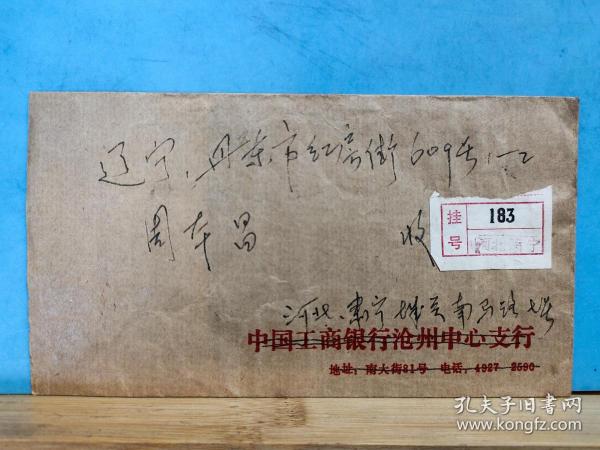 辽宁、丹东市红房街609号1-2
周车昌 收
挂号 183
河北肃宁
河北、肃宁城关南马路七号
中国工商银行沧州中心支行
地址：南大街81号 电话：4927 2590
孔夫子旧书网
www.kongfz.com